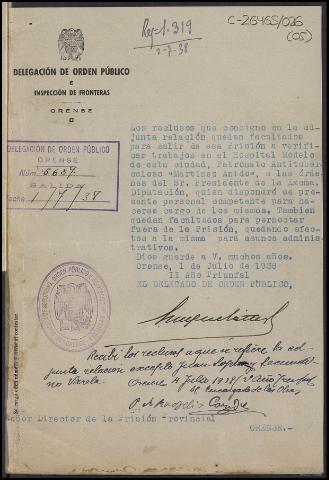 Reg=1.319
2-7-38
C-26465/026
(05)
DELEGACIÓN DE ORDEN PÚBLICO
E
INSPECCIÓN DE FRONTERAS
ORENSE
DELEGACIÓN DE ORDEN PÚBLICO
ORENSE
Núm. 5657
SALIDA
Fecha 1/7/38
Los reclusos que consigno en la adjunta relación quedan facultados
para salir de esa Prisión a verificar trabajos en el Hospital Modelo
de esta ciudad, Patronato Antituberculoso "Martinez Anido", a las órdenes
del Sr. Presidente de la Excma.
Diputación, quien dispondrá se
presente personal competente para hacerse
cargo de los mismos. Tambien
quedan facultados para pernoctar
fuera de la Prisión, quedando afectos
a la misma para asuntos administrativos.
Dios guarde a V. muchos años.
Orense, 1 de Julio de 1938
II Año Triunfal
EL DELEGADO DE ORDEN PÚBLICO,
Recibí los reclusos a que se refiere la adjunta
relación excepto Juan
Varela.
Orense 4 Julio 1938
El Encargado de las Obras
Señor Director de la Prisión Provincial
ORENSE.-